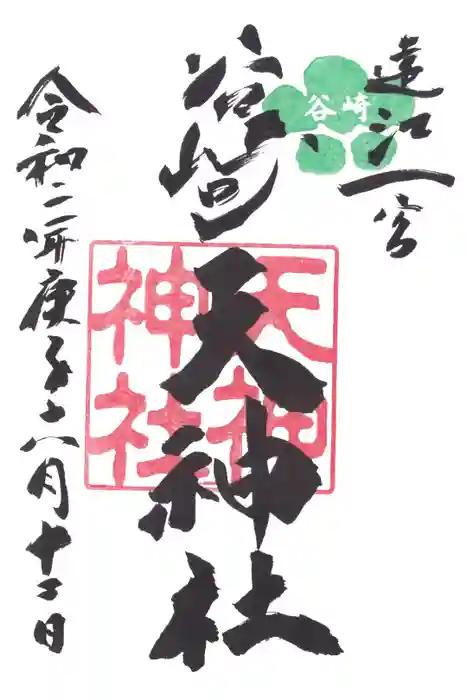 遠江一宮
谷崎
谷崎天神社
天神
神社
令和二年庚子八月十二日